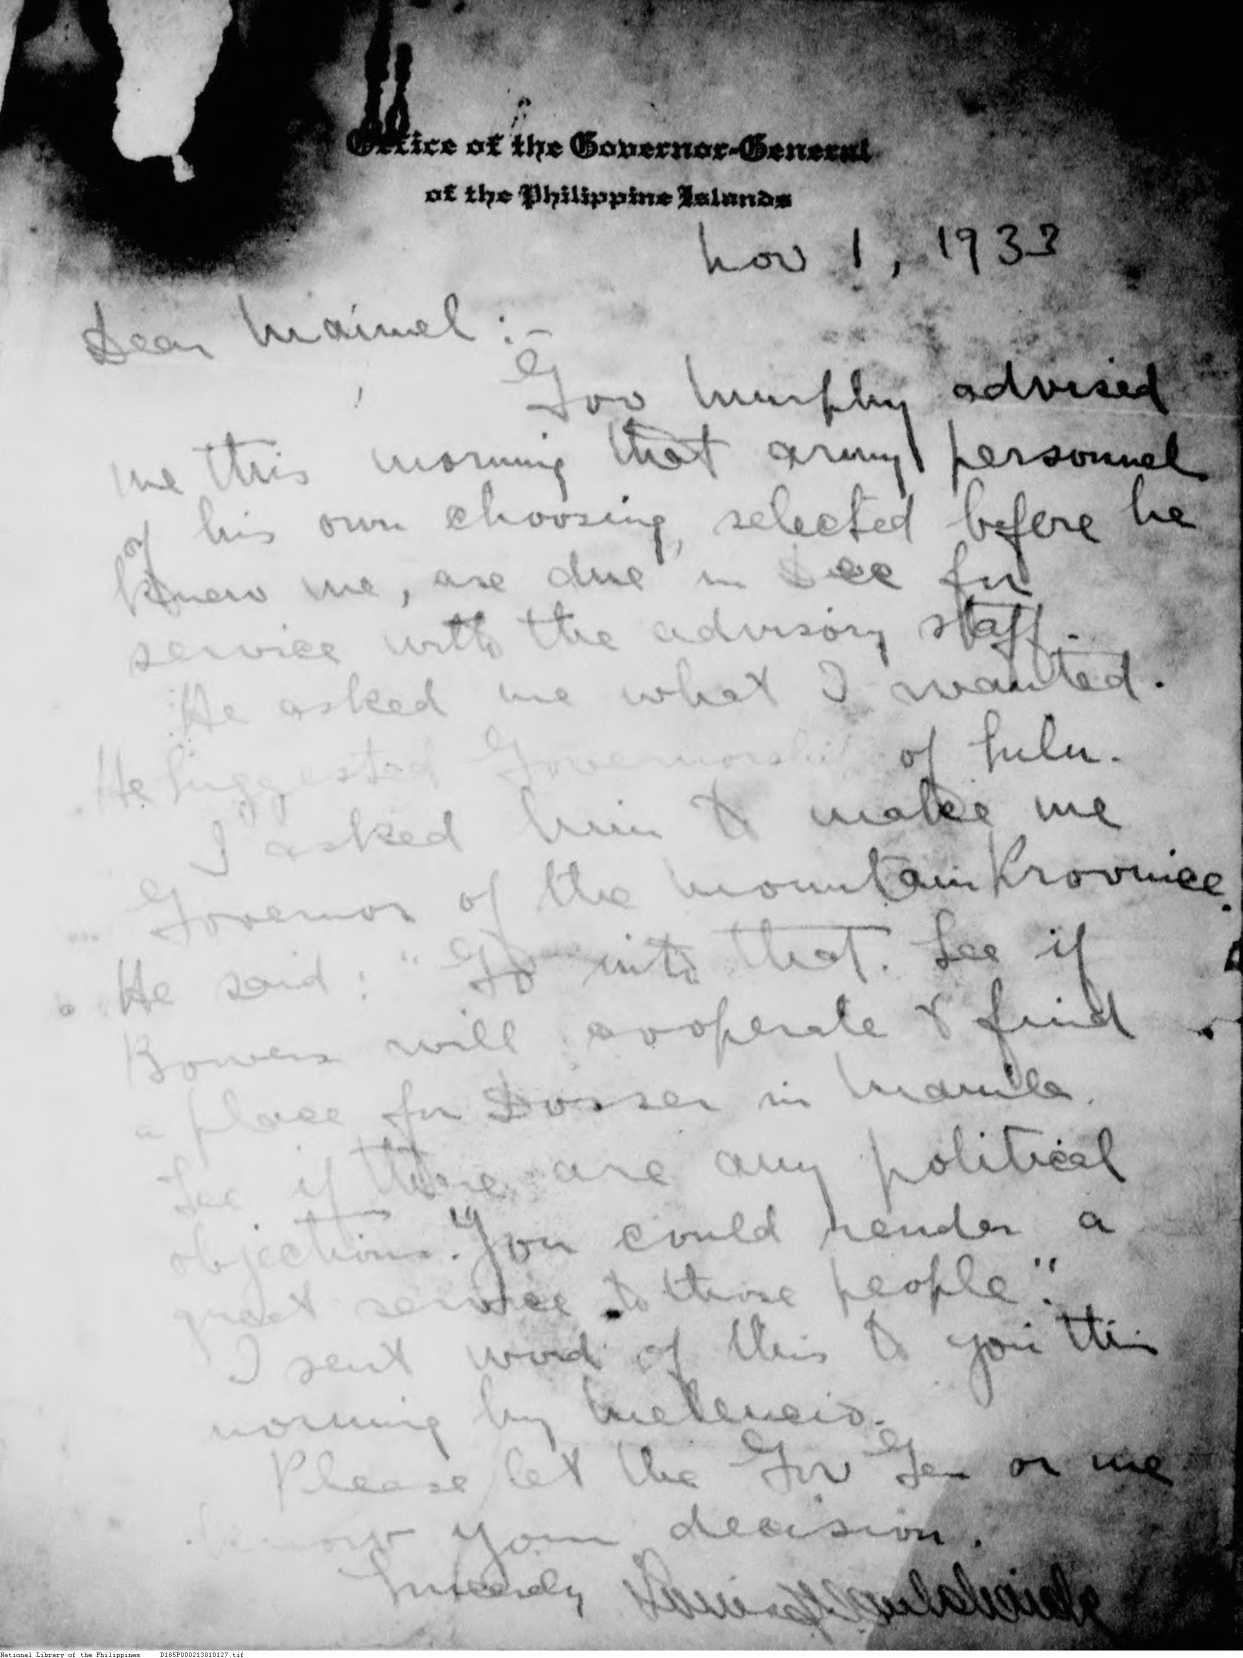 Office of the Governor-General
of the Philippine Islands
Nov 1, 1933
Dear Manuel :-
Gov Murphy advised
me this morning that army personnel
of his own choosing, selected before he
knew me, are due in Dec for
service with the advisory staff.
He asked me what I wanted.
He suggested Governorship of Sulu.
I asked him to make me
Governor of the Mountain Province.
He said: "Go into that. See if
Bowers will cooperate & find
a place for Dosser in Manila.
See if there are any political
objections. "You could render a
great service to those people".
I sent word of this to you this
morning by Melencio.
Please let the Gov Gen or me
know your decision.
Sincerely,
National Library of the Philippines D185P000213810127.tif